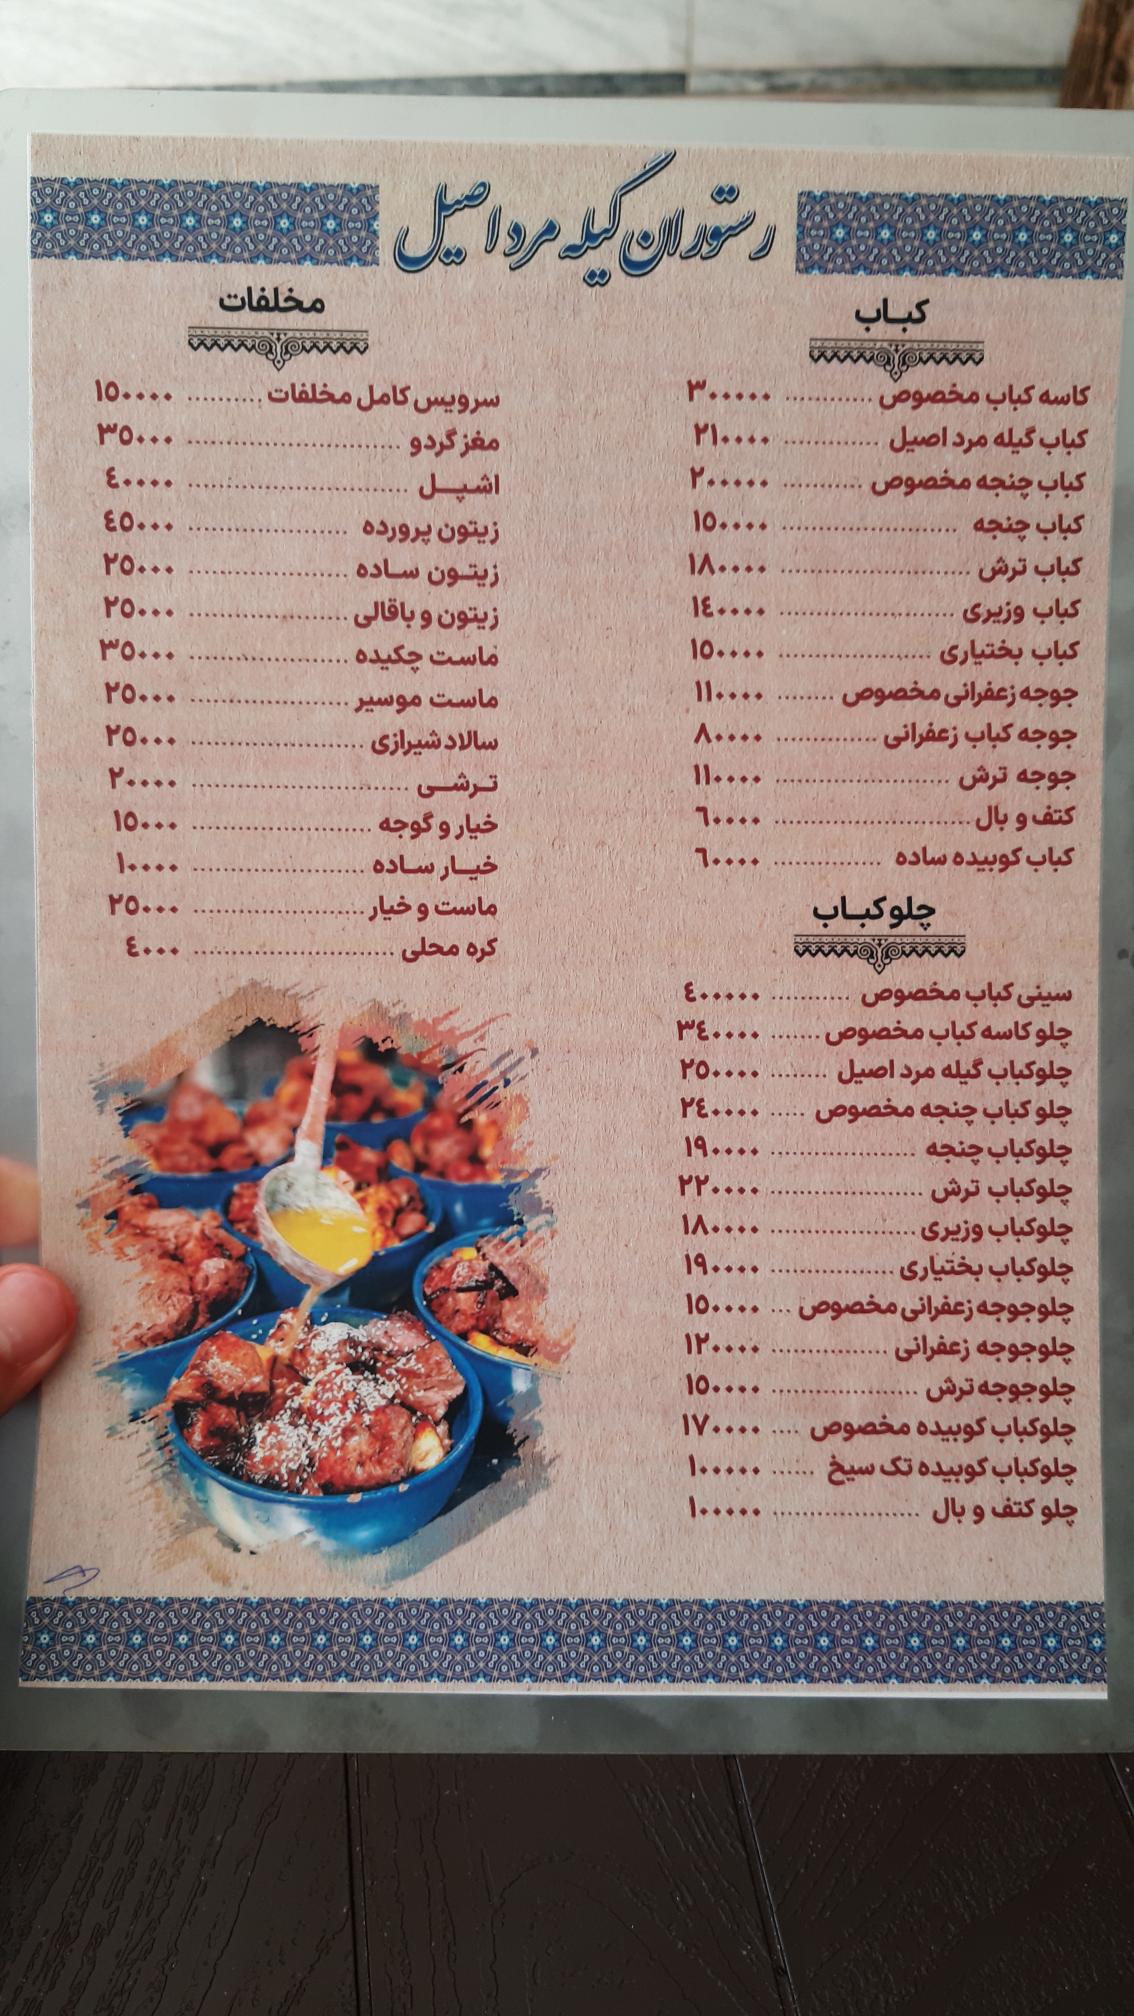 رستوران گیله مرد اصیل
کباب
کاسه کباب مخصوص ............ ۳۰۰۰۰۰
کباب گیله مرد اصیل ............. ۲۱۰۰۰۰
کباب چنجه مخصوص ........... ۲۰۰۰۰۰
کباب چنجه ......................... ۱۵۰۰۰۰
کباب ترش ........................... ۱۸۰۰۰۰
کباب وزیری ......................... ۱٤۰۰۰۰
کباب بختیاری ...................... ۱۵۰۰۰۰
جوجه زعفرانی مخصوص ........ ۱۱۰۰۰۰
جوجه کباب زعفرانی .............. ۸۰۰۰۰
جوجه ترش ......................... ۱۱۰۰۰۰
کتف و بال ............................ ٦۰۰۰۰
کباب کوبیده ساده ................ ٦۰۰۰۰
چلوکباب
سینی کباب مخصوص ........... ٤۰۰۰۰۰
چلو کاسه کباب مخصوص ....... ۳٤۰۰۰۰
چلوکباب گیله مرد اصیل ........ ۲۵۰۰۰۰
چلو کباب چنجه مخصوص ..... ۲٤۰۰۰۰
چلوکباب چنجه ..................... ۱۹۰۰۰۰
چلوکباب ترش ...................... ۲۲۰۰۰۰
چلوکباب وزیری ..................... ۱۸۰۰۰۰
چلوکباب بختیاری .................. ۱۹۰۰۰۰
چلوجوجه زعفرانی مخصوص ... ۱۵۰۰۰۰
چلوجوجه زعفرانی ................. ۱۲۰۰۰۰
چلوجوجه ترش ..................... ۱۵۰۰۰۰
چلوکباب کوبیده مخصوص .... ۱۷۰۰۰۰
چلوکباب کوبیده تک سیخ ...... ۱۰۰۰۰۰
چلو کتف و بال ..................... ۱۰۰۰۰۰
مخلفات
سرویس کامل مخلفات ........... ۱۵۰۰۰۰
مغز گردو .............................. ۳۵۰۰۰
اشپل ................................. ٤۰۰۰۰
زیتون پرورده ....................... ٤۵۰۰۰
زیتون ساده ........................ ۲۵۰۰۰
زیتون و باقالی ...................... ۲۵۰۰۰
ماست چکیده ...................... ۳۵۰۰۰
ماست موسیر ...................... ۲۵۰۰۰
سالاد شیرازی ....................... ۲۵۰۰۰
ترشی ................................ ۲۰۰۰۰
خیار و گوجه ......................... ۱۵۰۰۰
خیار ساده .......................... ۱۰۰۰۰
ماست و خیار ....................... ۲۵۰۰۰
کره محلی ............................ ٤۰۰۰